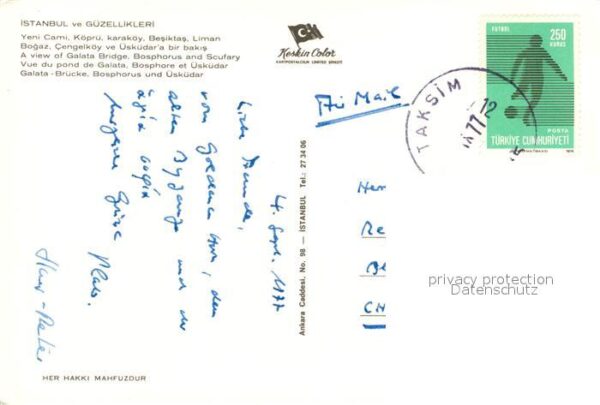 İSTANBUL ve GÜZELLİKLERİ
Yeni Cami, Köprü, karaköy, Beşiktaş, Liman
Boğaz, Çengelköy ve Üsküdar'a bir bakış
A view of Galata Bridge, Bosphorus and Scufary
Vue du pond de Galata, Bosphore et Üsküdar
Galata-Brücke, Bosphorus und Üsküdar
Keskin Color
KARTPOSTALCILIK LIMITED ŞİRKETİ
FUTBOL
250
KURUS
POSTA
TÜRKİYE CUMHURİYETİ
TAKSİM
12
77
Air Mail
4. Sept. 1977
Liebe Freunde,
vom Goldenen Horn, dem
alten Byzanz und der
ἁγία σοφία
Grüsse
Hans-Peter
Her
Re
CH
Ankara Caddesi, No. 98 — İSTANBUL Tel.: 27 34 06
privacy protection
Datenschutz
HER HAKKI MAHFUZDUR